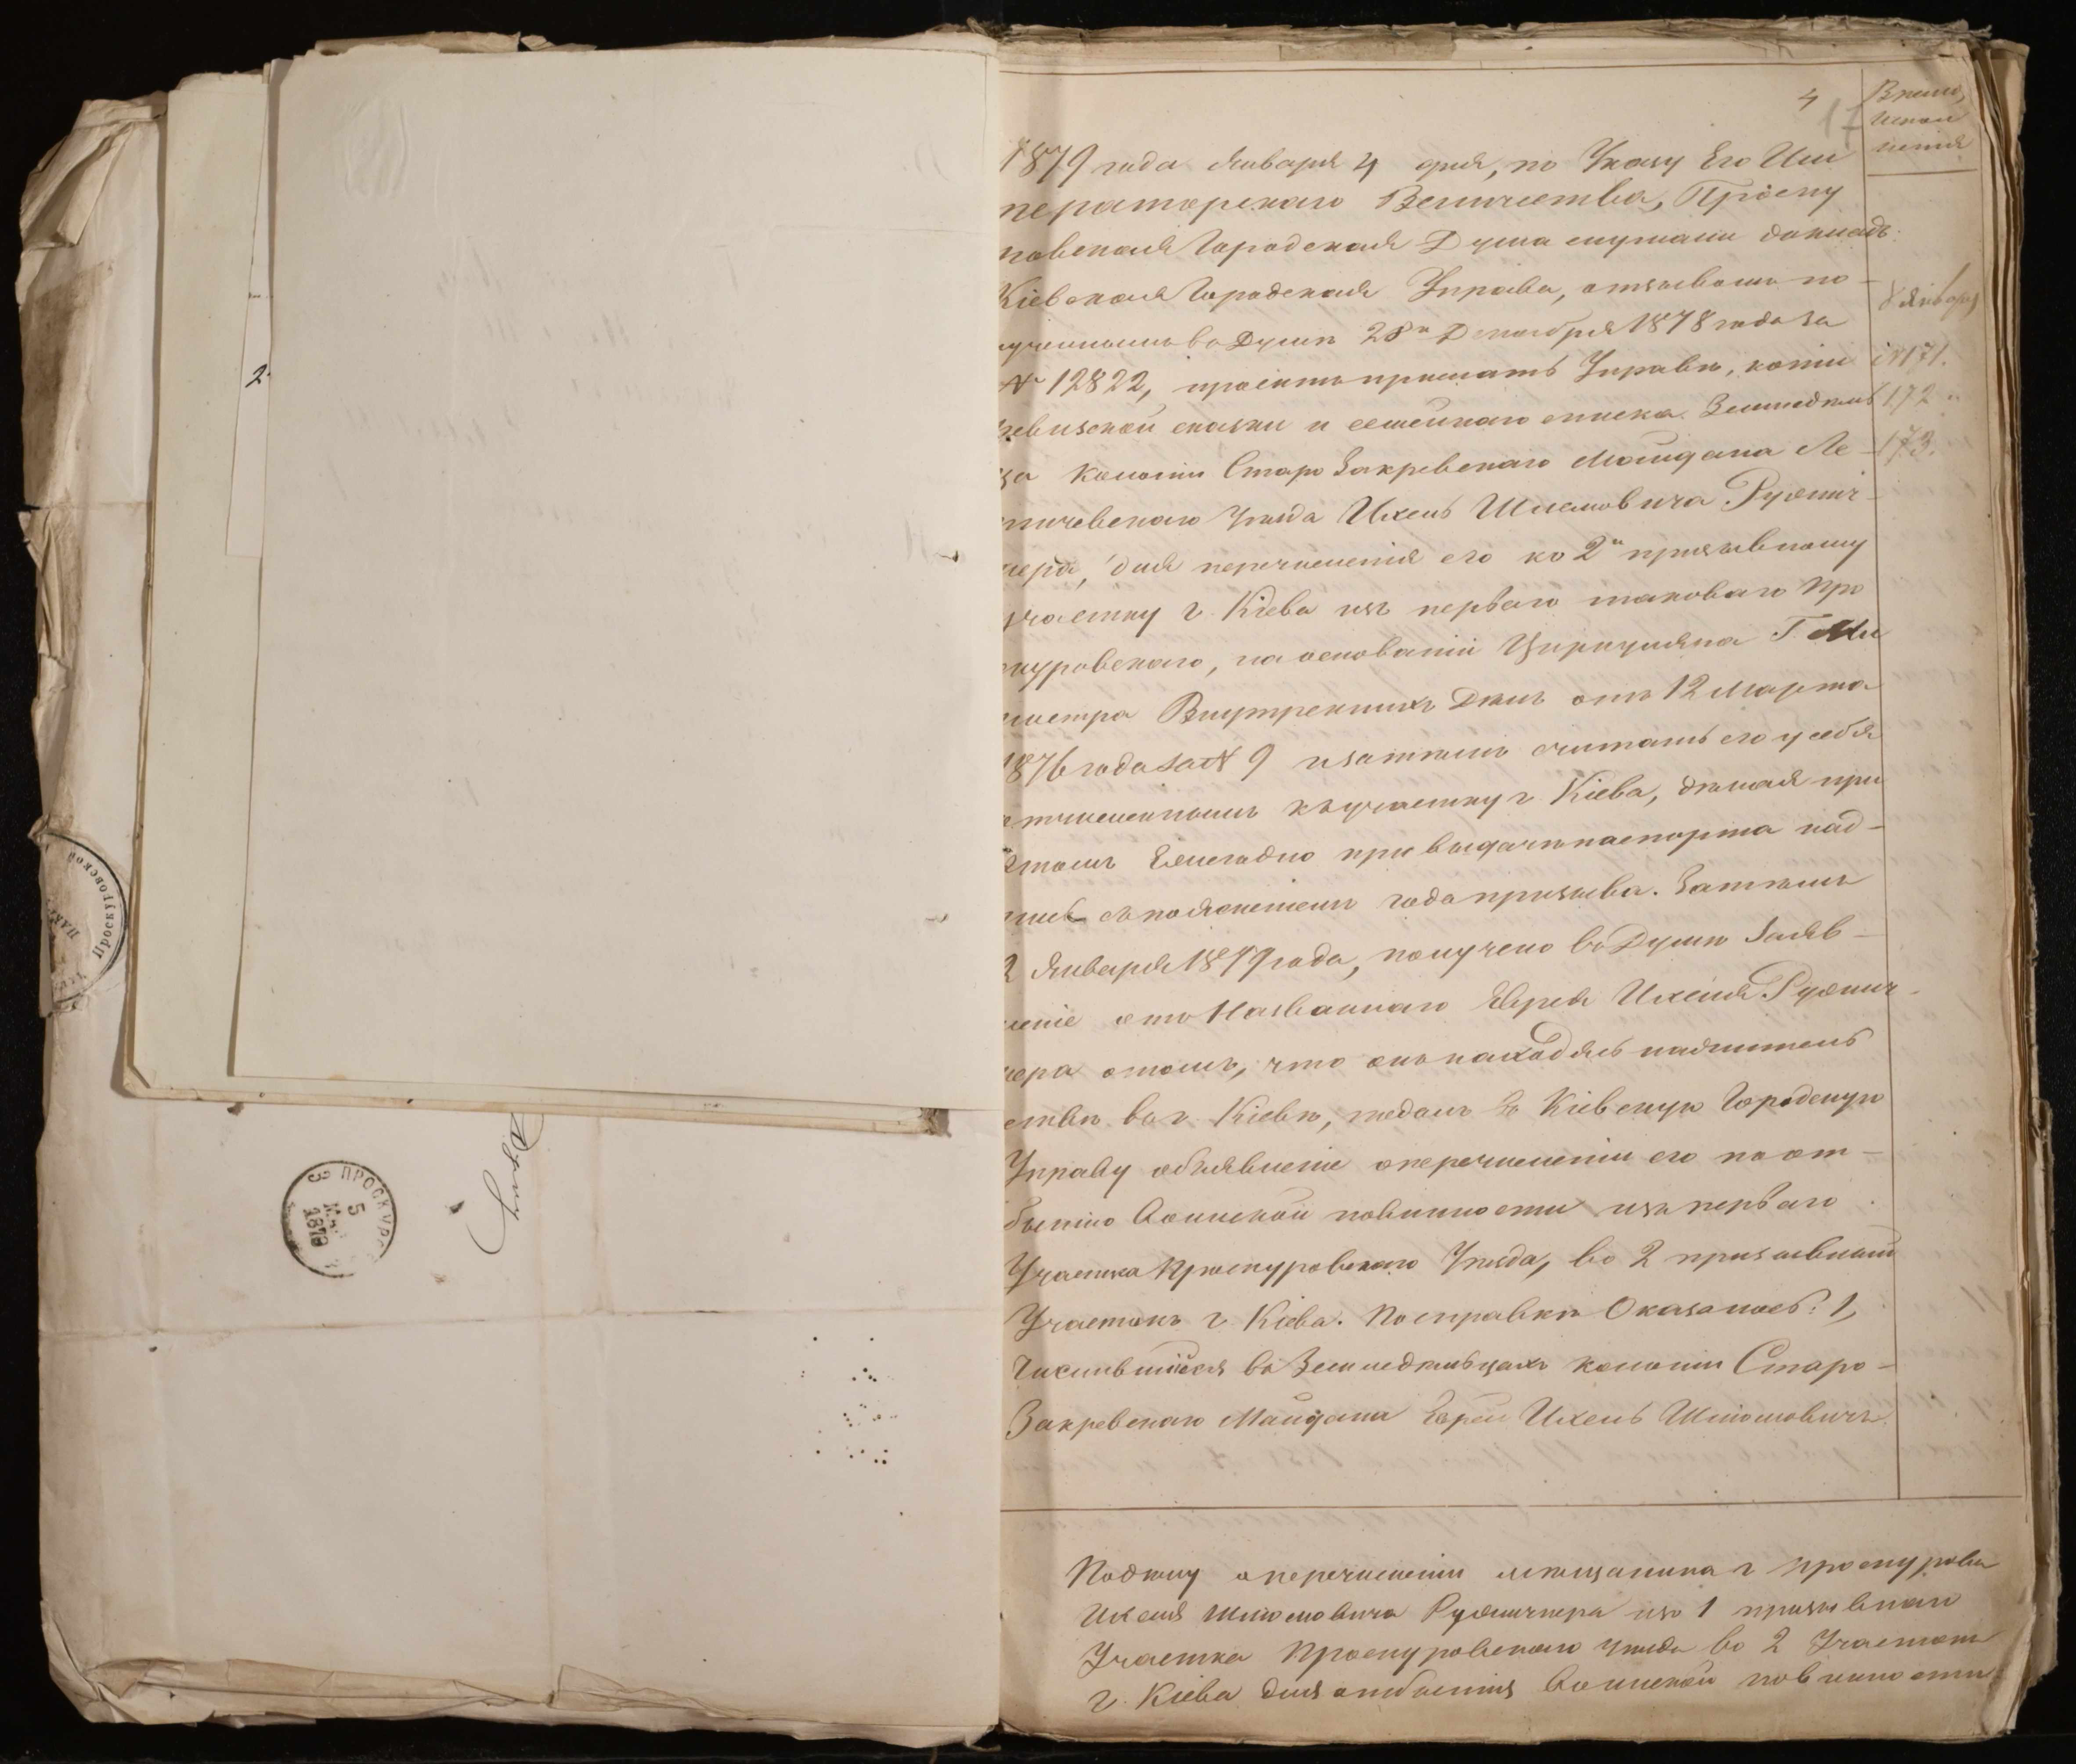 2.
Проскуровской
ПРОСКУРОВ
5
1879
3
Думу
4
17
Время
испол
ненія
1879 года Января 4 дня, по Указу Его Им
ператорскаго Величества, Проску
ровская Городская Дума слушали докладъ:
Кіевская Городская Управа, отзывомъ по-
лученнымъ въ Думѣ 28го Декабря 1878 года за
№ 12822, проситъ прислать Управѣ, копіи
ревизской сказки и семейнаго списка Земледѣль
ца колоніи Старо Закревскаго Майдана Ле-
тичевскаго Уѣзда Ихель Шлемовича Ружич-
нера, для перечисленія его ко 2му призывному
участку г. Кіева изъ перваго таковаго Про
скуровскаго, на основаніи Циркуляра Г. Ми
нистра Внутреннихъ Дѣлъ отъ 12 Марта
1876 года за № 9 и затѣмъ считать его у себя
отчисленнымъ къ участку г. Кіева, дѣлая при
этомъ Ежегодно при выдачѣ паспорта над-
пись съ поясненіемъ года призыва. Затѣмъ
2 Января 1879 года, получено въ Думѣ Заяв-
леніе отъ Названнаго Еврея Ихеля Ружич-
нера о томъ, что онъ находясь на жительс
ствѣ въ г. Кіевѣ, подалъ въ Кіевскую Городскую
Управу объявленіе о перечисленіи его по от-
бытію Воинской повинности изъ перваго
Участка Проскуровскаго Уѣзда, во 2 призывный
Участокъ г. Кіева. По справкѣ Оказалось: 1,
Числившійся въ Земледѣльцахъ колоніи Старо-
Закревскаго Майдана Еврей Ихель Шліомовичъ
8 Января
№ 171.
172 "
173.
По дѣлу о перечисленіи мѣщанина г Проскурова
Ихеля Шліомовича Ружичнера изъ 1 призывнаго
Участка Проскуровскаго уѣзда во 2 Участокъ
г. Кіева для отбытія Воинской повинности